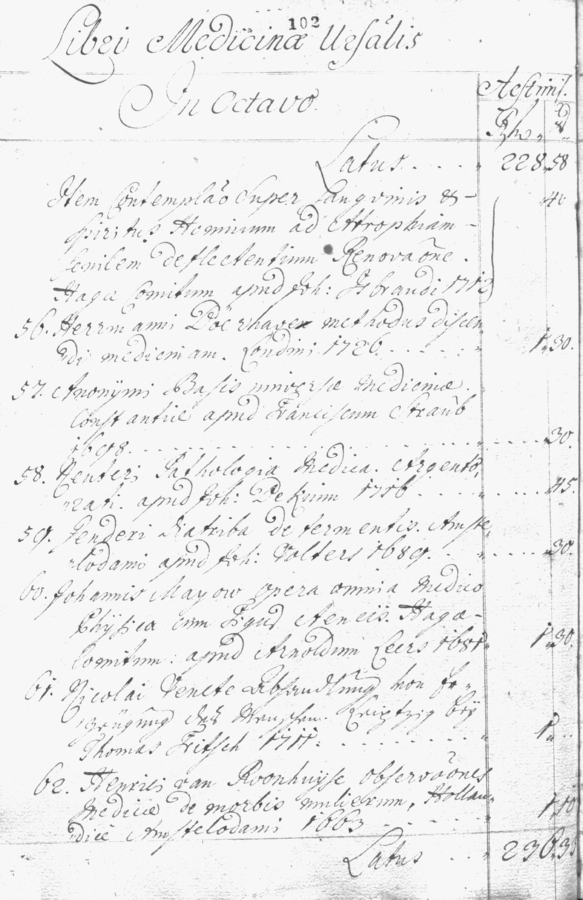 102
Libri Medicinæ Ursâlis
In Octavo.
Aestim.
Latus . . . . 228.58
Item Contemplaõ Super Sanguinis &
Spiritus Hominum ad Atrophiam
senilem deflectentium Renovaõne.
Hagæ Comitum apud Joh: Isbrandi 1713
56. Herrmanni Boerhaven methodus discen
di medicinam. Londini 1726. . . . . . 1.30.
57. Anonÿmi Basis universæ Medicinæ.
Constantiæ apud Franciscum Straub
1698. . . . . . . . . 30.
58. Henteri Pathologia Medica. Argento,
rati. apud Joh: 1716 . . . . . 45.
59. Senderi Diatriba de fermentis. Amste,
lodami apud Joh: Walters 1689. . . . . . 30.
60. Johannis Mayow opera omnia Medico
Phÿsica cum Figuris Aeneis. Hagæ-
Comitum: apud Arnoldum Leers 1681 1.30.
61. Nicolai Venete Abhandlung von Er,
zeugung des Menschen. Leipzig beÿ
Thomas Fritsch 1711. . . . . . . . . 1.
62. Henrici van Roonhuyse observaõnes
Medicæ de morbis mulierum, Hollan
dicè Amstelodami 1663 . . . . .
Latus . . . .